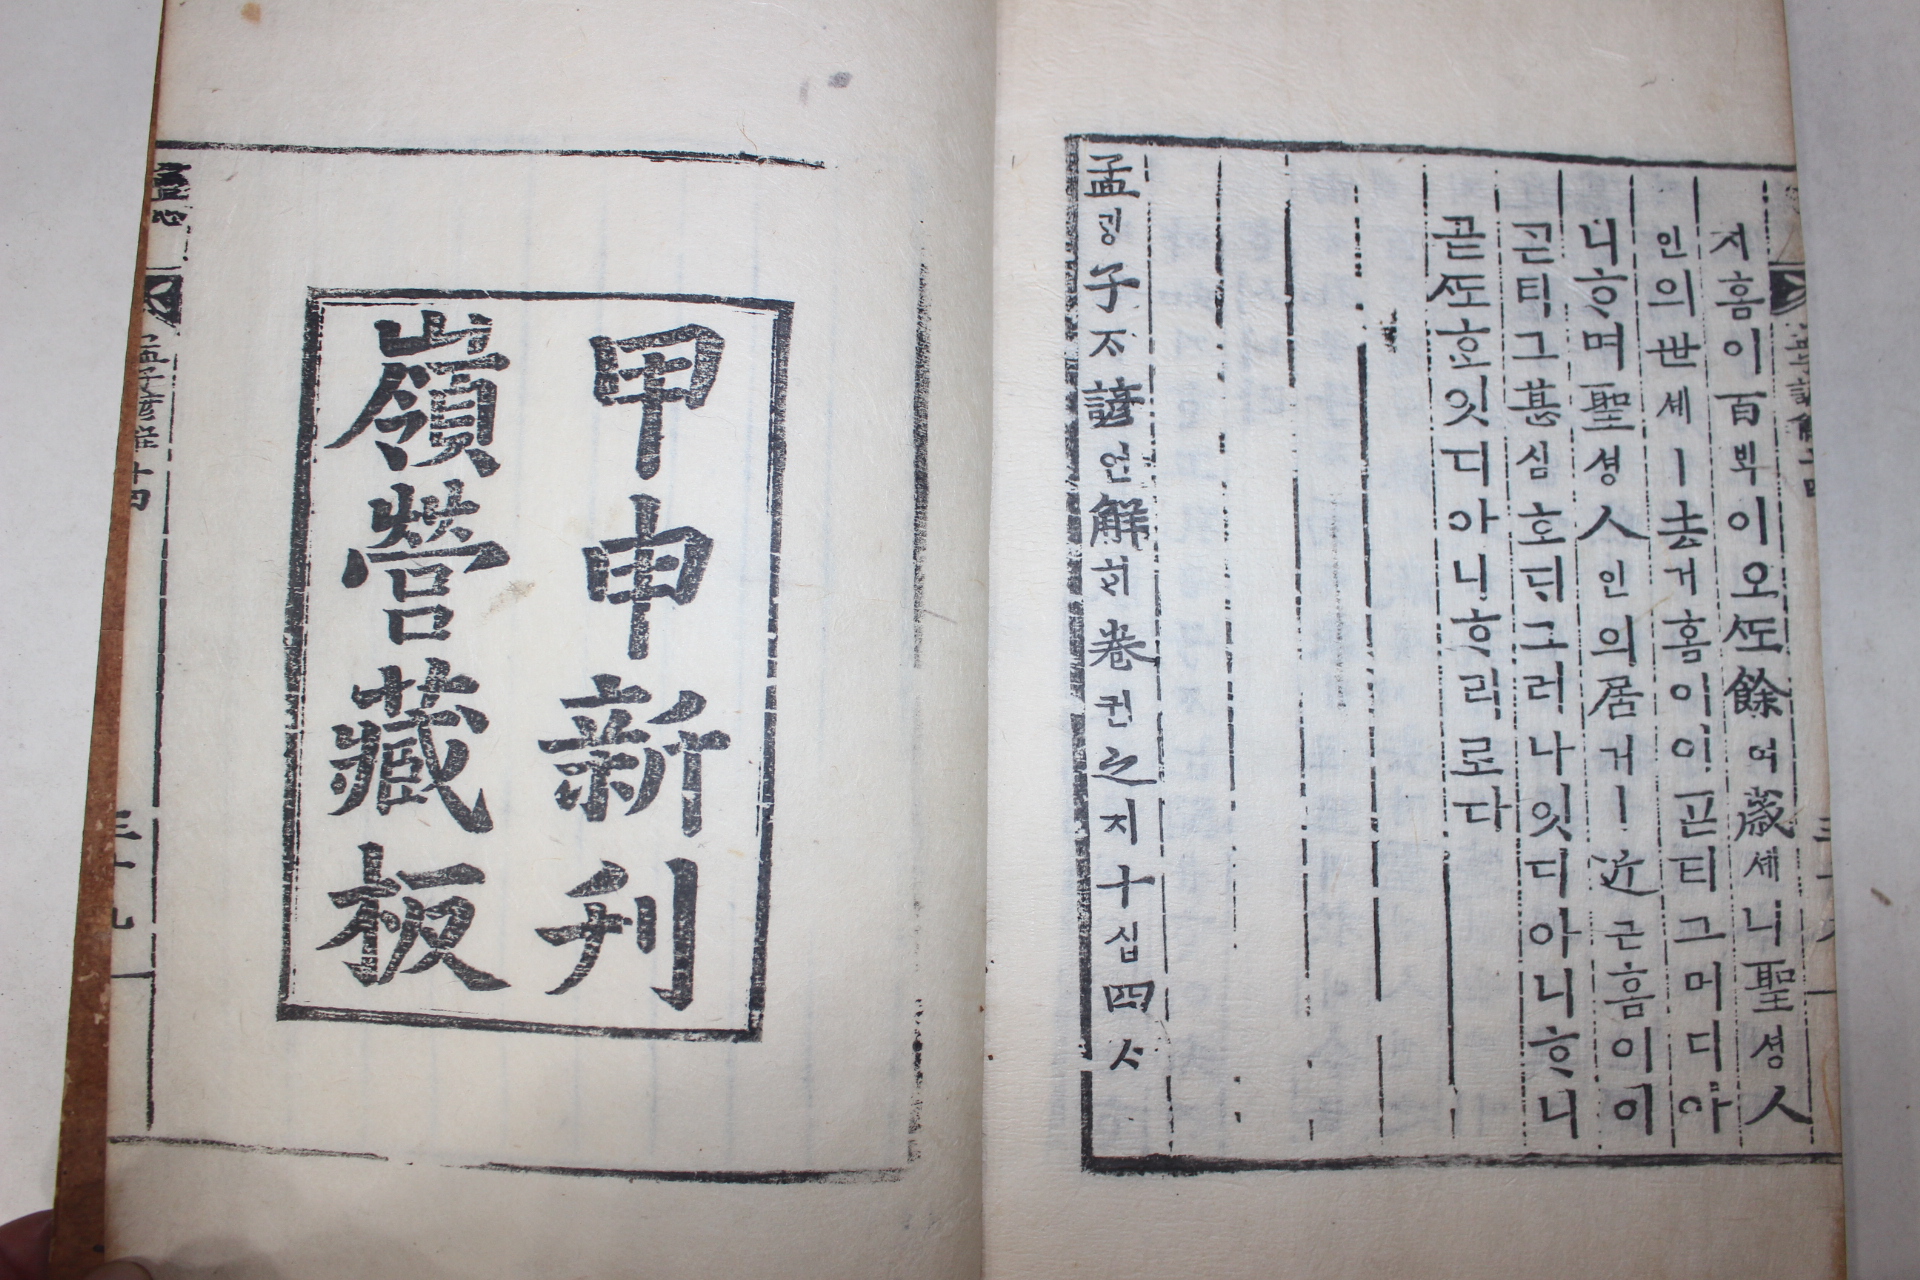 지홈이百ᄇᆡᆨ이오ᄯᅩ餘여歲셰니聖셩人
인의世셰ㅣ去거홈이이ᄀᆞᆮ티그머디아
니ᄒᆞ며聖셩人인의居거ㅣ近근홈이이
ᄀᆞᆮ티그甚심호ᄃᆡ그러나잇디아니ᄒᆞ니
곧ᄯᅩ호잇디아니ᄒᆞ리로다
孟ᄆᆡᆼ子ᄌᆞ諺언解ᄒᆡ卷권之지十십四ᄉᆞ
甲申新刊
嶺營藏板
孟子諺解十四
三十九